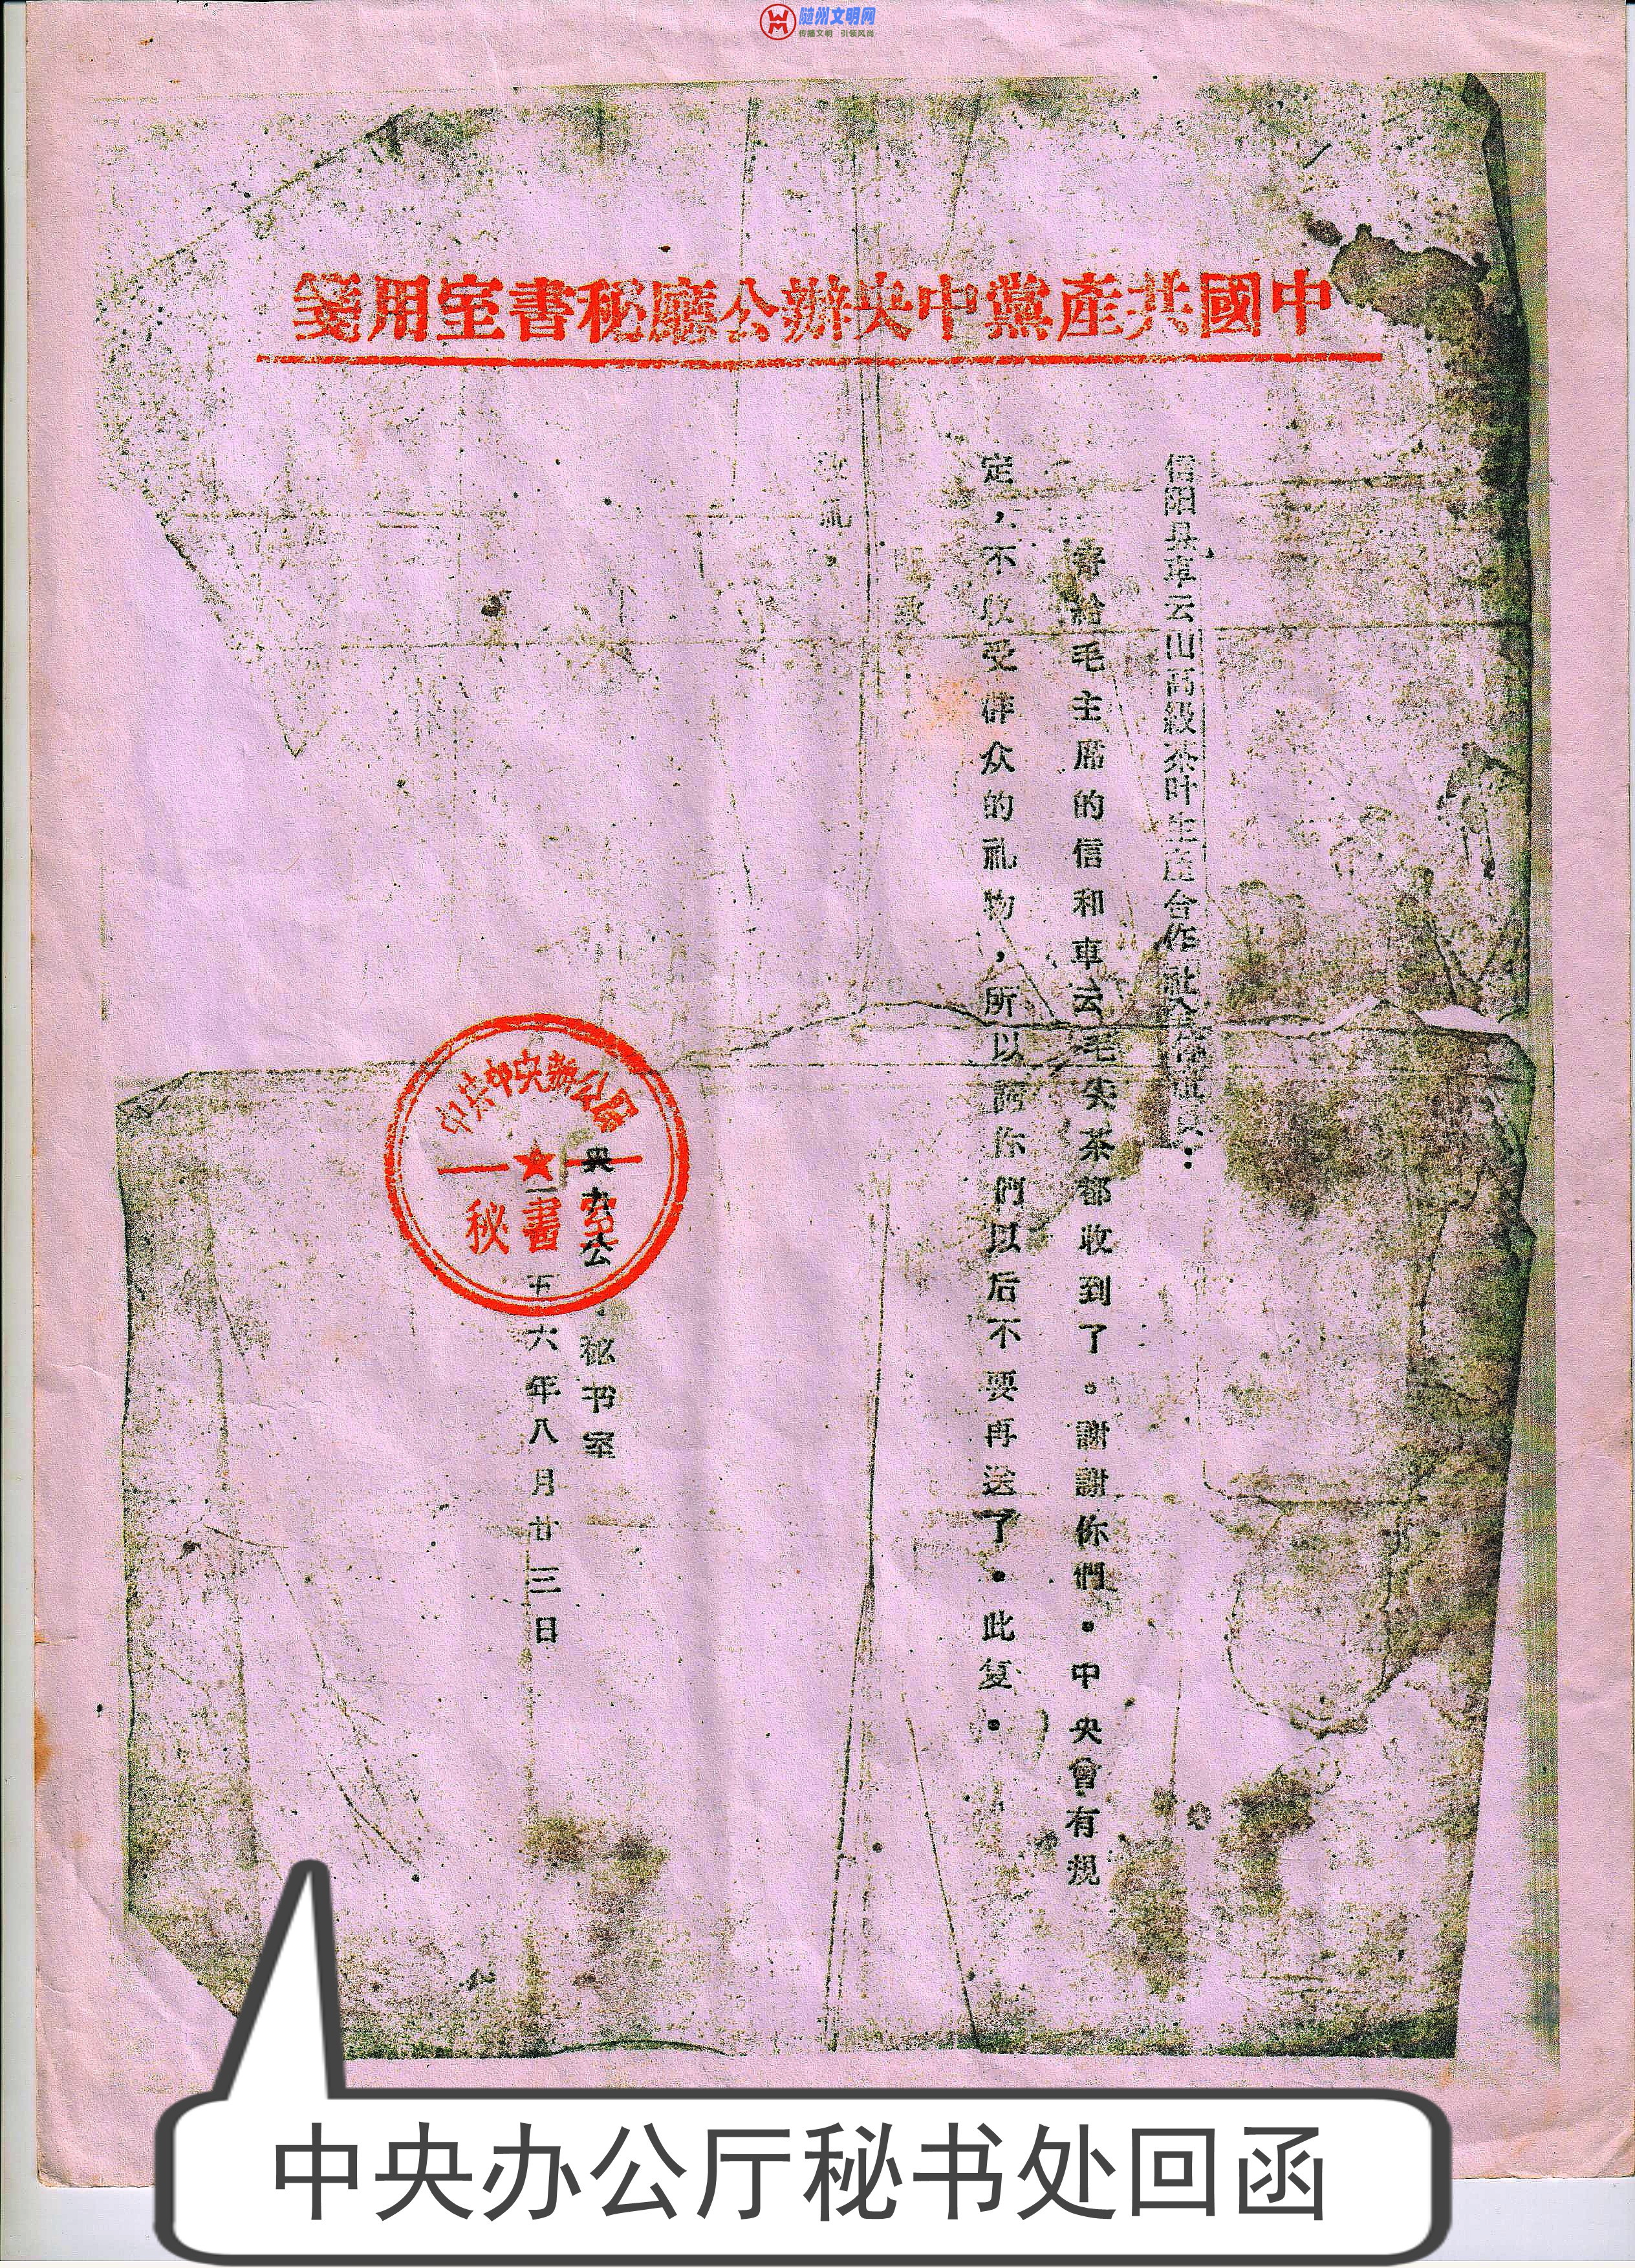 随州文明网
传播文明 引领风尚
中國共產黨中央辦公廳秘書室用箋
信阳县車云山高級茶叶生產合作社
寄給毛主席的信和車云毛尖茶都收到了。謝謝你們。中央曾有規
定，不收受群众的礼物，所以請你們以后不要再送了。此复。
敬礼。
央办公 秘书室
一 五六年八月廿三日
中共中央辦公廳
秘書室
中央办公厅秘书处回函